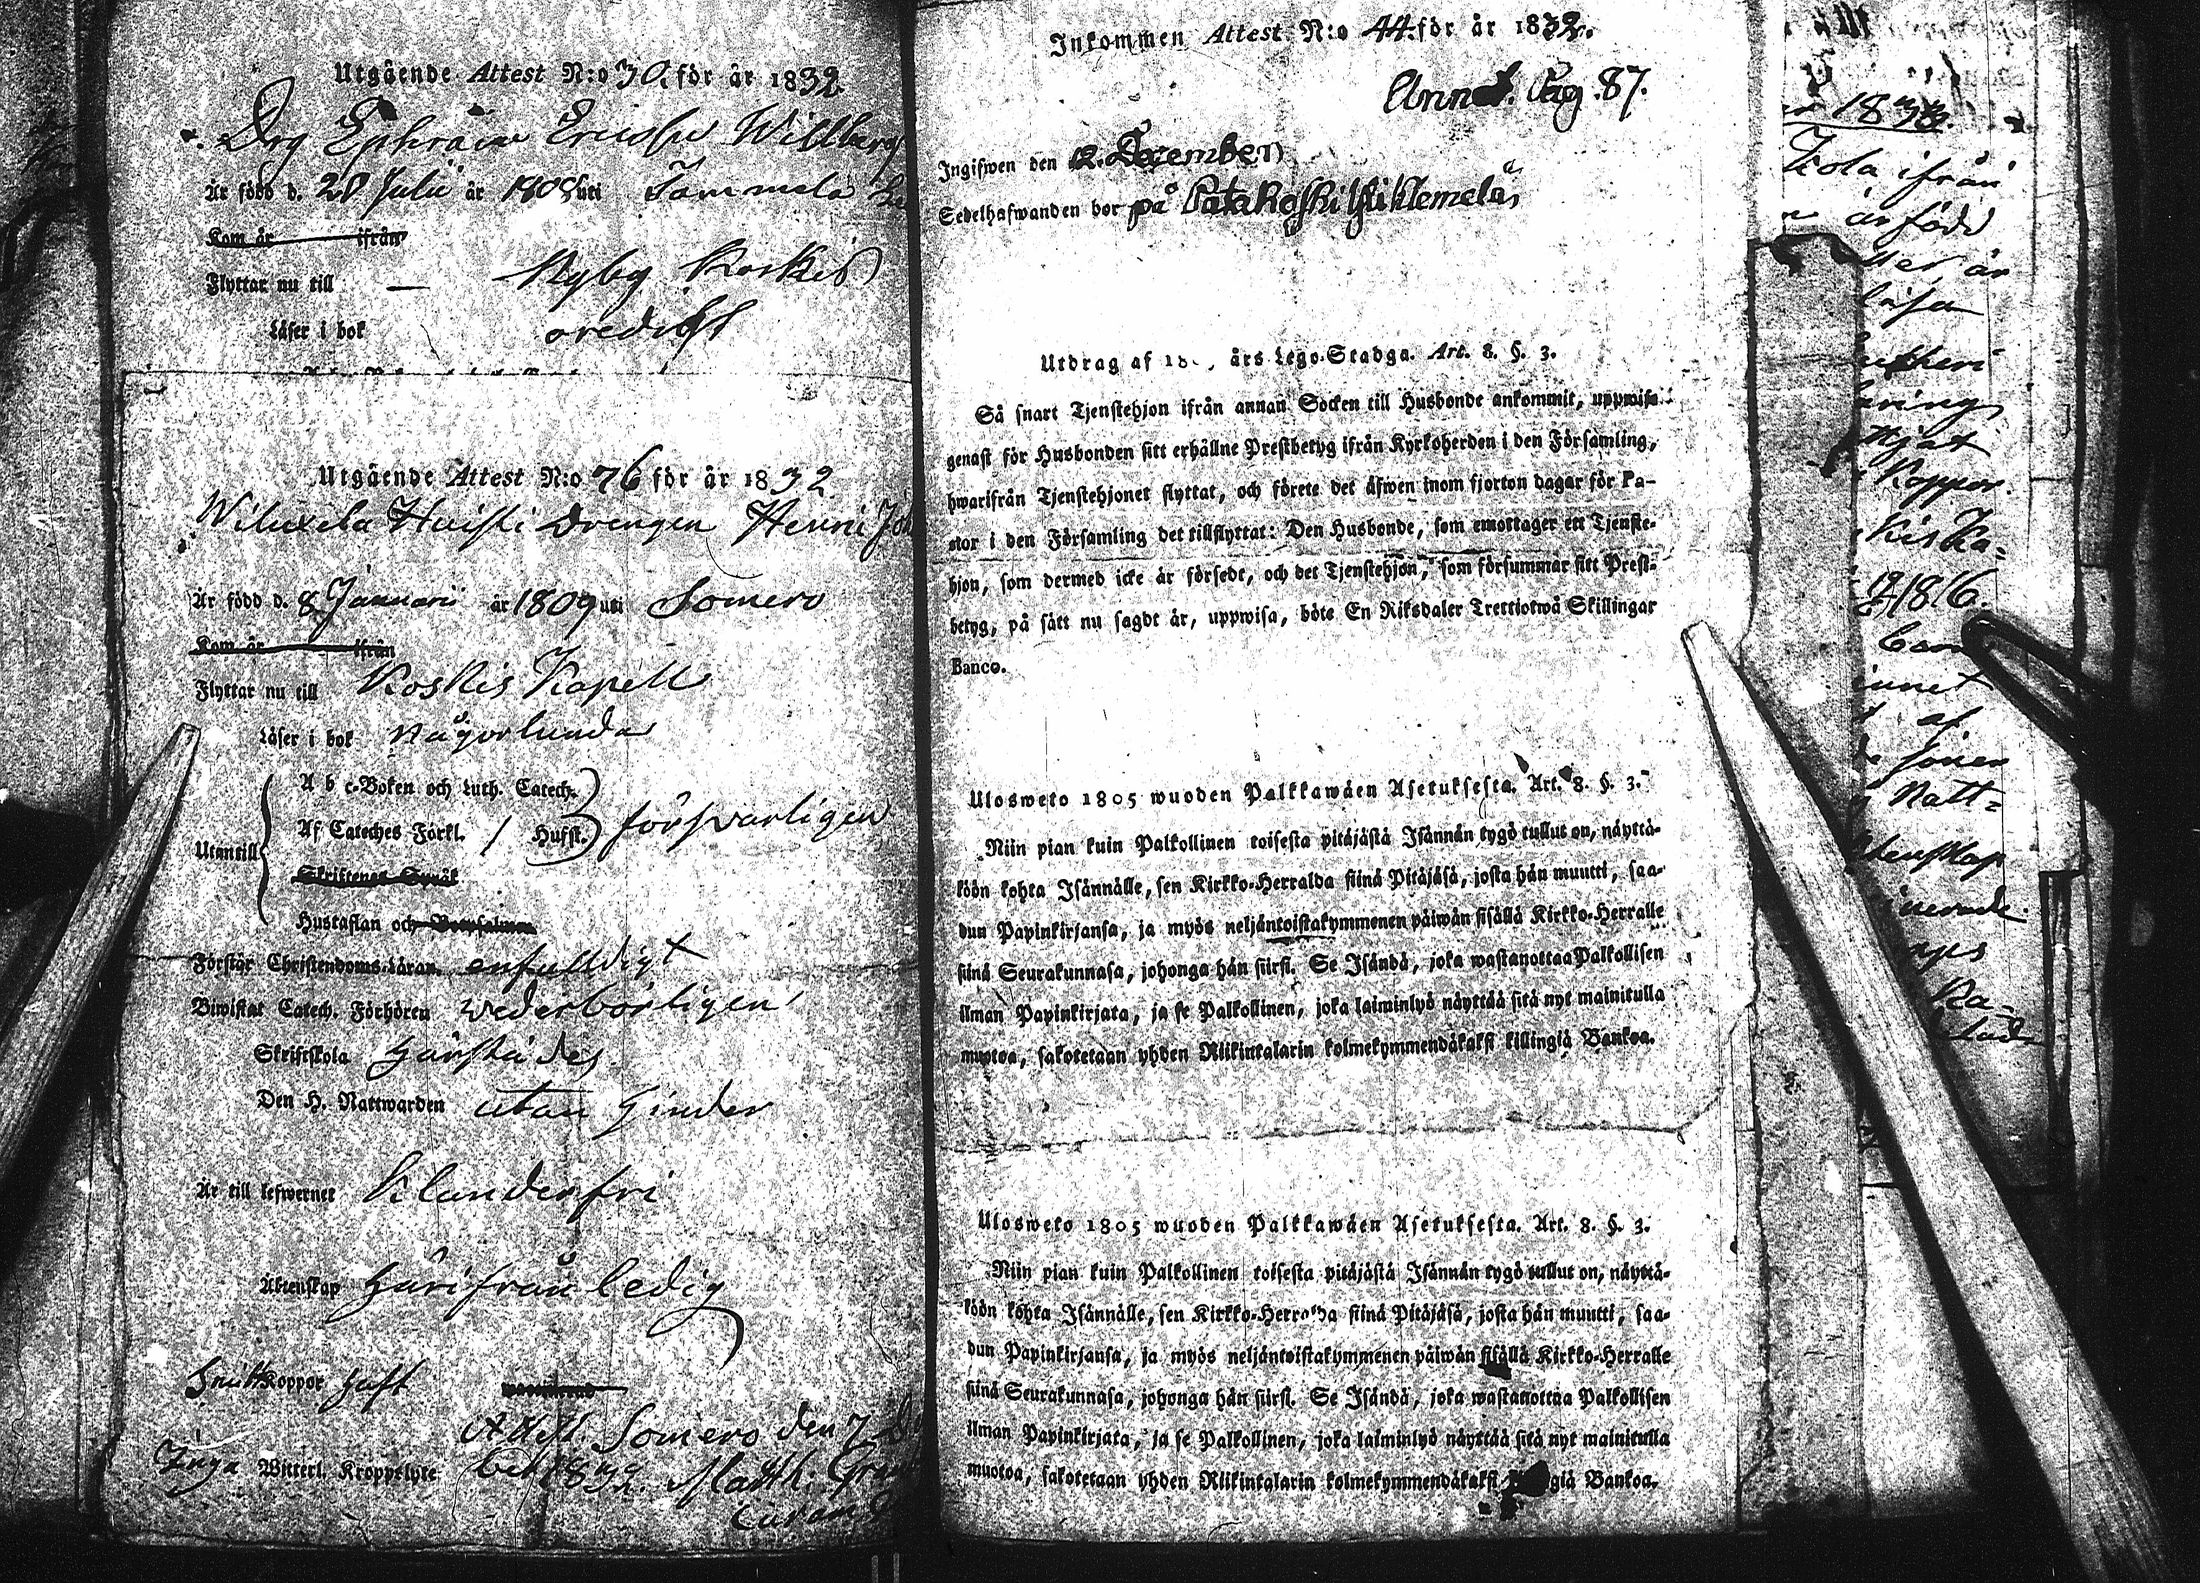 Utgående Attest N:o 30. för år 1832
Drg Ephraim Ericss. Willberg
Är född d. 28 Julii år 1808 uti Tammela
Kom år ifrån
Flyttar nu till — Nyby Koskis
Läser i bok oredigt
Utgående Attest N:o 76 för år 1832
Wiluxela Huisti Drengen Henric
Är född d. 8 Januarii år 1809 uti Somero
Kom år ifrån
Flyttar nu till Koskis Kapell
Läser i bok någorlunda
Utantill
A b c-Boken och Luth. Catech.
Af Cateches Förkl. / Hufst. försvarligen
Skriftenes Språk
Hustaflan och Botpsalmen
Förstår Christendoms-Läran enfuldigt
Biwistat Catech. Förhören wederbörligen
Skriftskola härstädes
Den H. Nattwarden utan hinder
Är till lefwernet klanderfri
Äktenskap härifrån ledig
Koppor haft
Attest. Somero den 7
Inga Witterl. Kroppslyte 1832. Matth.
Inkommen Attest N:o 44. för år 1832.
Pag. 87.
Ingifwen den 12. December
Sedelhafwanden bor på
Utdrag af 18 års Lego-Stadga. Art. 8. §. 3.
Så snart Tjenstehjon ifrån annan Socken till Husbonde ankommit, uppwise
genast för Husbonden sitt erhållne Prestbetyg ifrån Kyrkoherden i den Församling,
hwarifrån Tjenstehjonet flyttat, och förete det äfwen inom fjorton dagar för Pa-
stor i den Församling det tillflyttat: Den Husbonde, som emottager ett Tjenste-
hjon, som dermed icke är försedt, och det Tjenstehjon, som försummar sitt Prest-
betyg, på sätt nu sagdt är, uppwisa, böte En Riksdaler Trettiotwå Skillingar
Banco.
Uloswето 1805 wuoden Palkkawäen Asetuksesta. Art. 8. §. 3.
Niin pian kuin Palkollinen toisesta pitäjästä Isännän tygö tullut on, näyttä-
köön kohta Isännälle, sen Kirkko-Herralda siinä Pitäjäsä, josta hän muutti, saa-
dun Papinkirjansa, ja myös neljäntoistakymmenen päiwän sisällä Kirkko-Herralle
siinä Seurakunnasa, johonga hän siirsi. Se Isändä, joka wastanottaa Palkollisen
ilman Papinkirjata, ja se Palkollinen, joka laiminlyö näyttää sitä nyt mainitulla
muotoa, sakotetaan yhden Riikintalarin kolmekymmendäkaksi killingiä Bankoa.
Ulosweto 1805 wuoden Palkkawäen Asetuksesta. Art. 8. §. 3.
Niin pian kuin Palkollinen toisesta pitäjästä Isännän tygö tullut on, näyttä-
köön kohta Isännälle, sen Kirkko-Herralda siinä Pitäjäsä, josta hän muutti, saa-
dun Papinkirjansa, ja myös neljäntoistakymmenen päiwän sisällä Kirkko-Herralle
siinä Seurakunnasa, johonga hän siirsi. Se Isändä, joka wastanottaa Palkollisen
ilman Papinkirjata, ja se Palkollinen, joka laiminlyö näyttää sitä nyt mainitulla
muotoa, sakotetaan yhden Riikintalarin kolmekymmendäkaksi giä Bankoa.
ifrån
är född
är
läsa
Koppor
1816.
af
Natt-